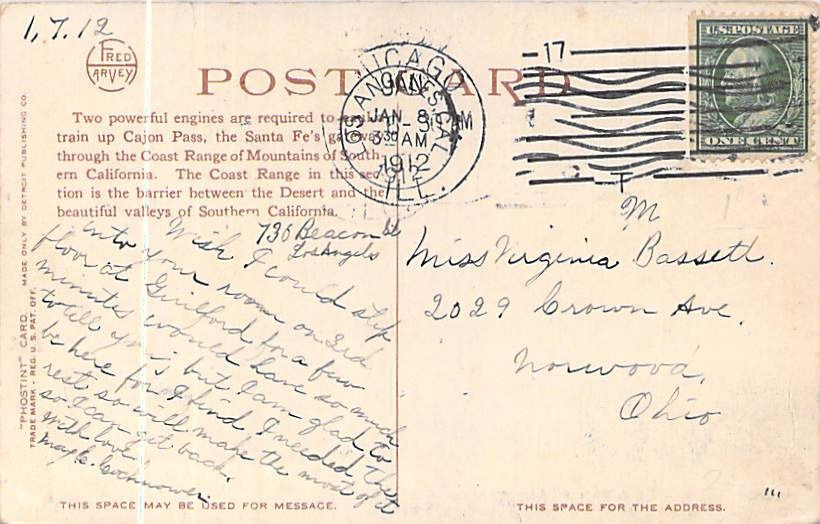 1,7.12
FRED
HARVEY
POST CARD
Two powerful engines are required to
train up Cajon Pass, the Santa Fe's gateway
through the Coast Range of Mountains of South-
ern California. The Coast Range in this sec-
tion is the barrier between the Desert and the
beautiful valleys of Southern California.
"PHOSTINT" CARD. MADE ONLY BY DETROIT PUBLISHING CO.
TRADE MARK - REG. U.S. PAT. OFF.
CHICAGO
JAN 8
330 AM
1912
ILL.
17
U.S. POSTAGE
ONE CENT
736 Beacon St
Los Angels
Wish I could step
into your room on 3rd
floor at Guilford for a few
minutes would have so much
to tell you; but I am glad to
be here for I find I needed the
rest so will make the most of it
so I can get back.
With love.
THIS SPACE MAY BE USED FOR MESSAGE.
M
Miss Virginia Bassett.
2029 Crown Ave.
Norwood,
Ohio
THIS SPACE FOR THE ADDRESS.